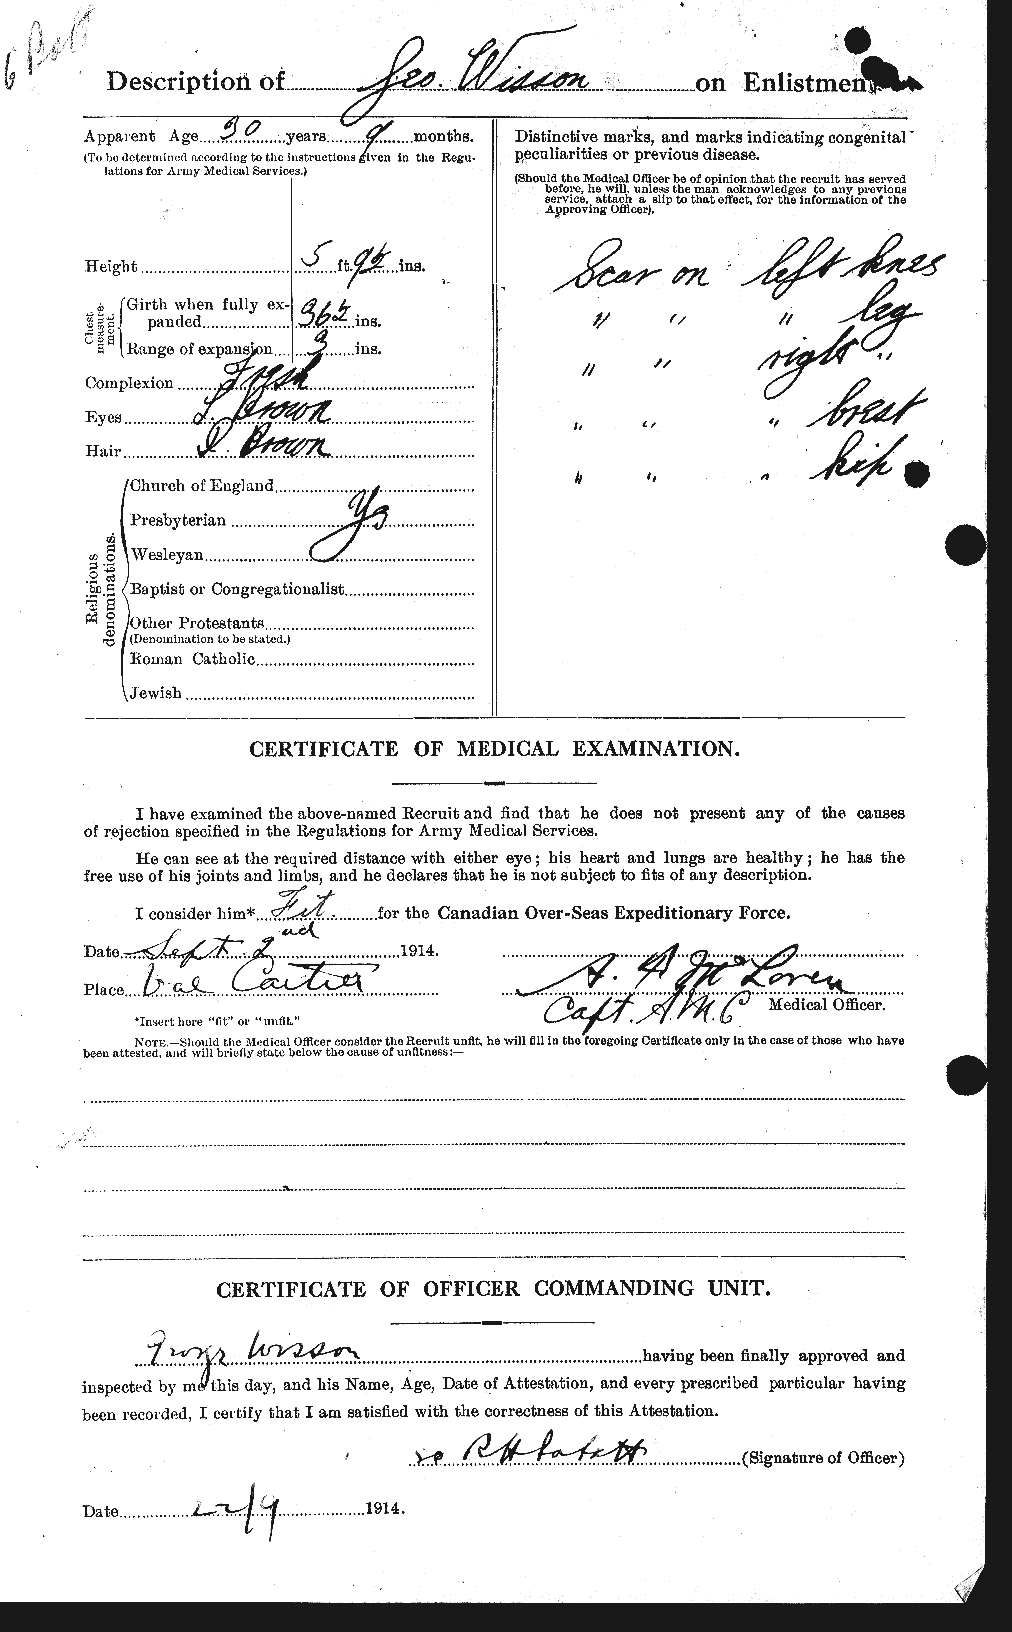 6 Batt
Description of Geo. Wisson on Enlistment
Apparent Age 30 years 9 months.
(To be determined according to the instructions given in the Regu-
lations for Army Medical Services.)
Height 5 ft. 9½ ins.
Chest measure-ment.
Girth when fully ex-
panded 36½ ins.
Range of expansion 3 ins.
Complexion Fresh
Eyes L. Brown
Hair D. Brown
Religious denominations.
Church of England
Presbyterian Ys
Wesleyan
Baptist or Congregationalist
Other Protestants
(Denomination to be stated.)
Roman Catholic
Jewish
Distinctive marks, and marks indicating congenital
peculiarities or previous disease.
(Should the Medical Officer be of opinion that the recruit has served
before, he will, unless the man acknowledges to any previous
service, attach a slip to that effect, for the information of the
Approving Officer).
Scar on left knes
" " " leg
" " right "
" " " brest
" " " hip
CERTIFICATE OF MEDICAL EXAMINATION.
I have examined the above-named Recruit and find that he does not present any of the causes
of rejection specified in the Regulations for Army Medical Services.
He can see at the required distance with either eye; his heart and lungs are healthy; he has the
free use of his joints and limbs, and he declares that he is not subject to fits of any description.
I consider him* Fit. for the Canadian Over-Seas Expeditionary Force.
Date Sept 2nd 1914.
Place Val Cartier
A. A McLoren
Capt. A.M.C Medical Officer.
*Insert here "fit" or "unfit."
NOTE.—Should the Medical Officer consider the Recruit unfit, he will fill in the foregoing Certificate only in the case of those who have
been attested, and will briefly state below the cause of unfitness:—
CERTIFICATE OF OFFICER COMMANDING UNIT.
George Wisson having been finally approved and
inspected by me this day, and his Name, Age, Date of Attestation, and every prescribed particular having
been recorded, I certify that I am satisfied with the correctness of this Attestation.
(Signature of Officer)
Date 22/9 1914.